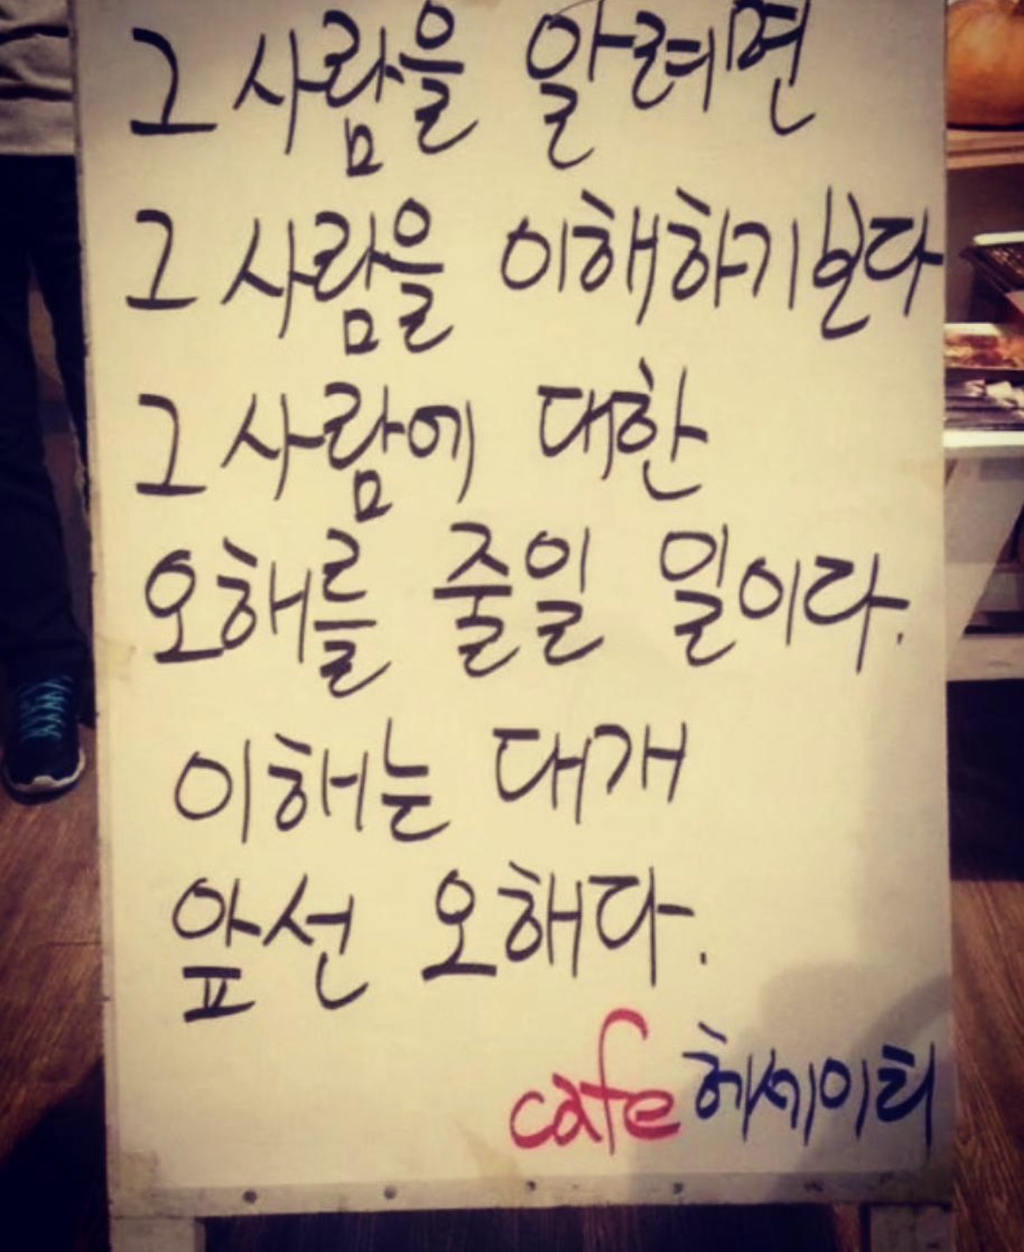 그 사람을 알려면
그 사람을 이해하기보다
그 사람에 대한
오해를 줄일 일이다.
이해는 대개
앞선 오해다.
cafe 헤세이티